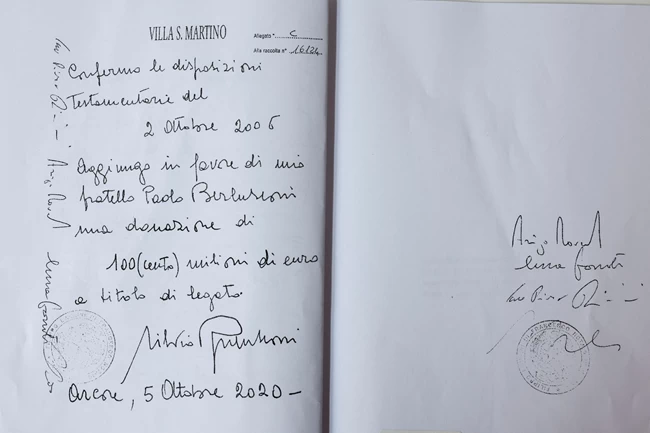 VILLA S. MARTINO
Allegato "C
Alla raccolta n° 16124
Confermo le disposizioni
Testamentarie del
2 Ottobre 2006
Aggiungo in favore di mio
fratello Paolo Berlusconi
una donazione di
100 (cento) milioni di euro
a titolo di legato
Silvio Berlusconi
Arcore, 5 Ottobre 2020 -